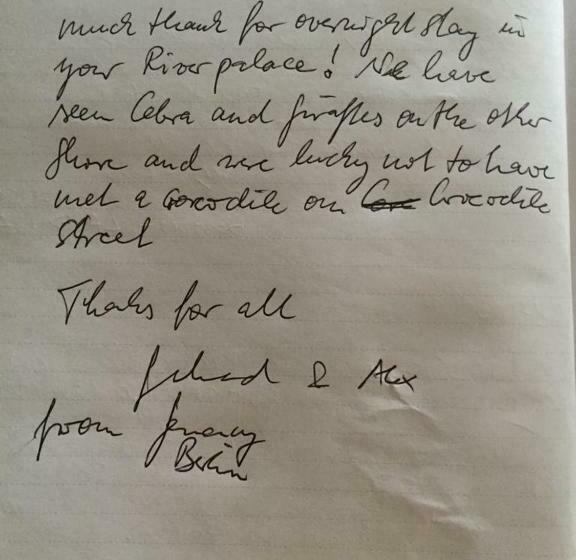 much thank for overnight stay in
your River palace! We have
seen Cebra and giraffes on the other
shore and were lucky not to have
met a crocodile on Crocodile
street
Thanks for all
& Alex
from Germany
Berlin